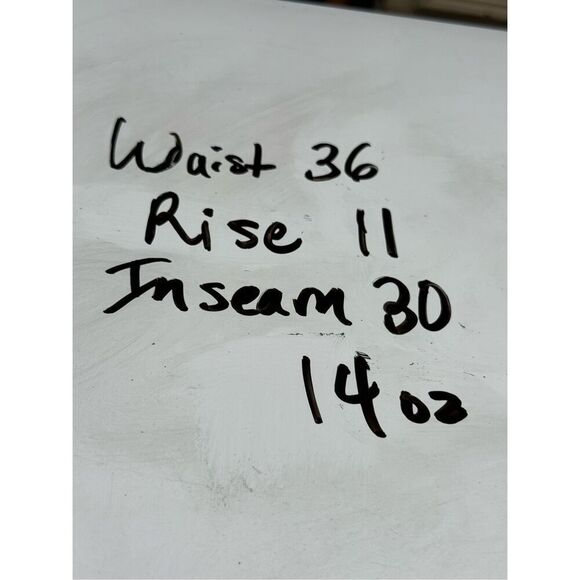 Waist 36
Rise 11
Inseam 30
14 oz